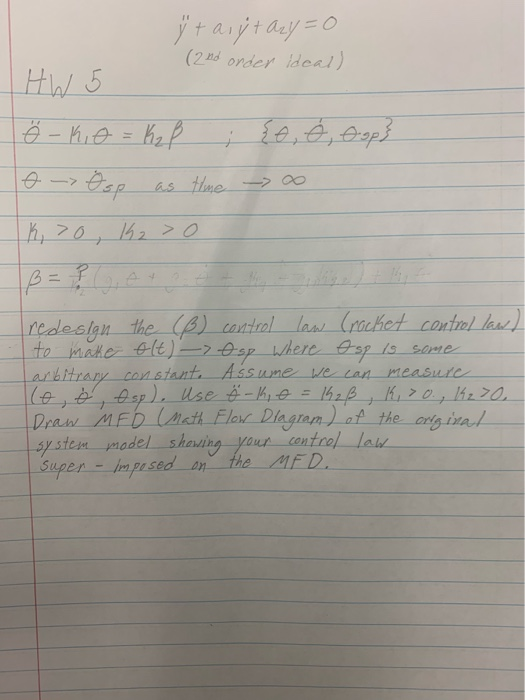 ÿ + a₁ẏ + a₂y = 0
(2nd order ideal)
HW 5
θ̈ - K₁θ = K₂β ; {θ, θ̇, θsp}
θ → θsp as time → ∞
K₁ > 0, K₂ > 0
β = ?
redesign the (β) control law (rocket control law)
to make θ(t) → θsp where θsp is some
arbitrary constant. Assume we can measure
(θ, θ̇, θsp). Use θ̈ - K₁θ = K₂β, K₁ > 0, K₂ > 0.
Draw MFD (Math Flow Diagram) of the original
system model showing your control law
super - imposed on the MFD.